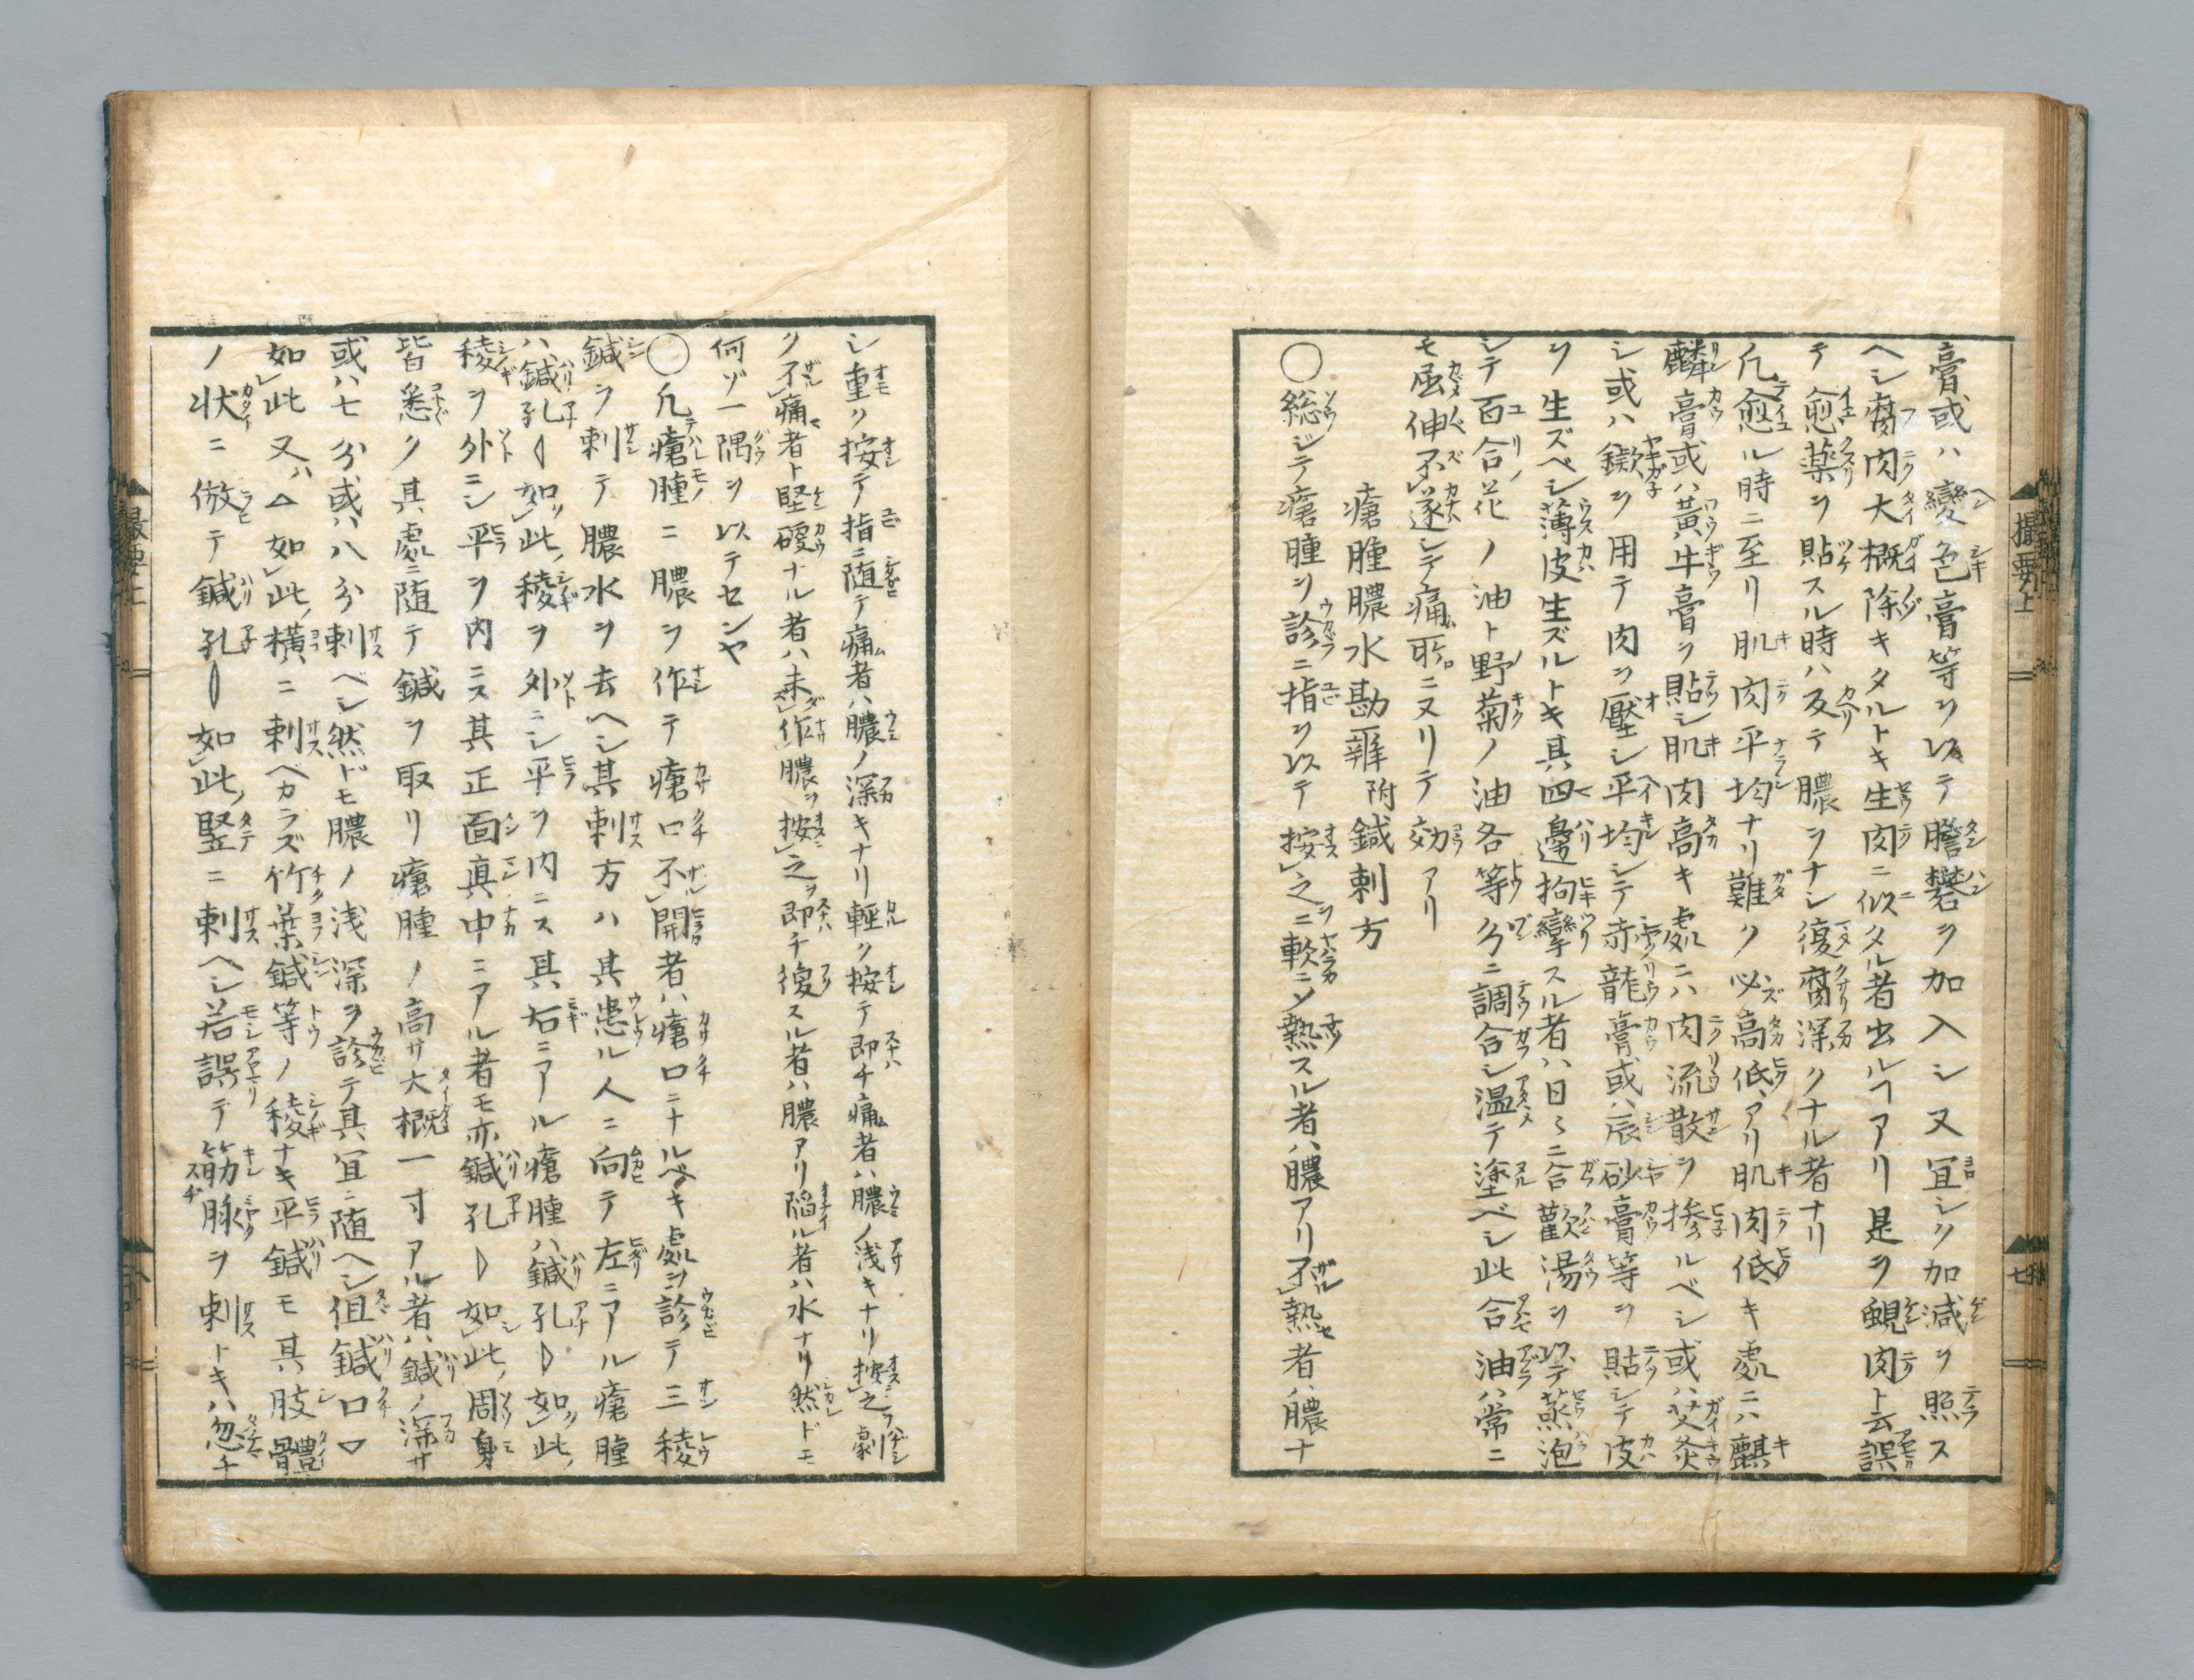 膏或ハ變色膏等ヲ以テ膽礬ヲ加入シ又宜シク加減ヲ照ス
ヘシ腐肉大概除キタルトキ生肉ニ似タル者出ルヿアリ是ヲ鯢肉ト云誤
テ愈薬ヲ貼スル時ハ反テ膿ヲナシ復腐深クナル者ナリ
凢愈ル時ニ至リ肌肉平均ナリ難ク必高低アリ肌肉低キ處ニハ麒
麟膏或ハ黃牛膏ヲ貼シ肌肉高キ處ニハ肉流散ヲ摻ルベシ或ハ艾灸
シ或ハ鐬ヲ用テ肉ヲ壓シ平均シテ赤龍膏或ハ辰砂膏等ヲ貼シテ皮
ヲ生ズベシ薄皮生ズルトキ其四邊拘攣スル者ハ日々ニ合歡湯ヲ以テ蒸泡
シテ百合花ノ油ト野菊ノ油各等分ニ調合シ温テ塗ベシ此合油ハ常ニ
モ屈伸不遂シテ痛所ニヌリテ効アリ
瘡腫膿水勘辨附鍼刺方
〇総ジテ瘡腫ヲ診ニ指ヲ以テ按之ニ軟ニソ熱スル者ハ膿アリ不熱者ハ膿ナ
シ重ク按テ指ニ随テ痛者ハ膿ノ深キナリ輕ク按テ即チ痛者ハ膿ノ浅キナリ按之劇
ク不痛者ト堅硬ナル者ハ未作膿ヲ按之ヲ即チ復スル者ハ膿アリ陷ル者ハ水ナリ然ドモ
何ゾ一隅ヲ以テセンヤ
〇凢瘡腫ニ膿ヲ作テ瘡口不開者ハ瘡口ニナルベキ處ヲ診テ三稜
鍼ヲ刺テ膿水ヲ去ヘシ其刺方ハ其患ル人ニ向テ左ニアル瘡腫
ハ鍼孔 如此稜ヲ外ニシ平ヲ内ニス其右ニアル瘡腫ハ鍼孔 如此
稜ヲ外ニシ平ヲ内ニス其正面真中ニアル者モ亦鍼孔 如此周身
皆悉ク其處ニ随テ鍼ヲ取リ瘡腫ノ高サ大概一寸アル者ハ鍼ノ深サ
或ハ七分或ハ八分刺ベシ然ドモ膿ノ浅深ヲ診テ其宜ニ随ヘシ但鍼口
如此又ハ△如此横ニ刺ベカラズ竹葉鍼等ノ稜ナキ平鍼モ其肢體
ノ状ニ倣テ鍼孔 如此竪ニ刺ヘシ若誤テ筋脉ヲ刺トキハ忽チ
撮要上
七